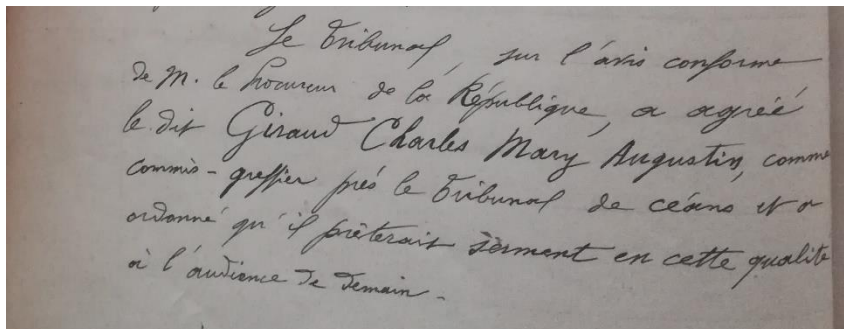 Le Tribunal, sur l'avis conforme
de M. le Procureur de la République, a agréé
le dit Giraud Charles Mary Augustin, comme
commis-greffier près le Tribunal de céans et a
ordonné qu'il prêterait serment en cette qualité
à l'audience de demain.